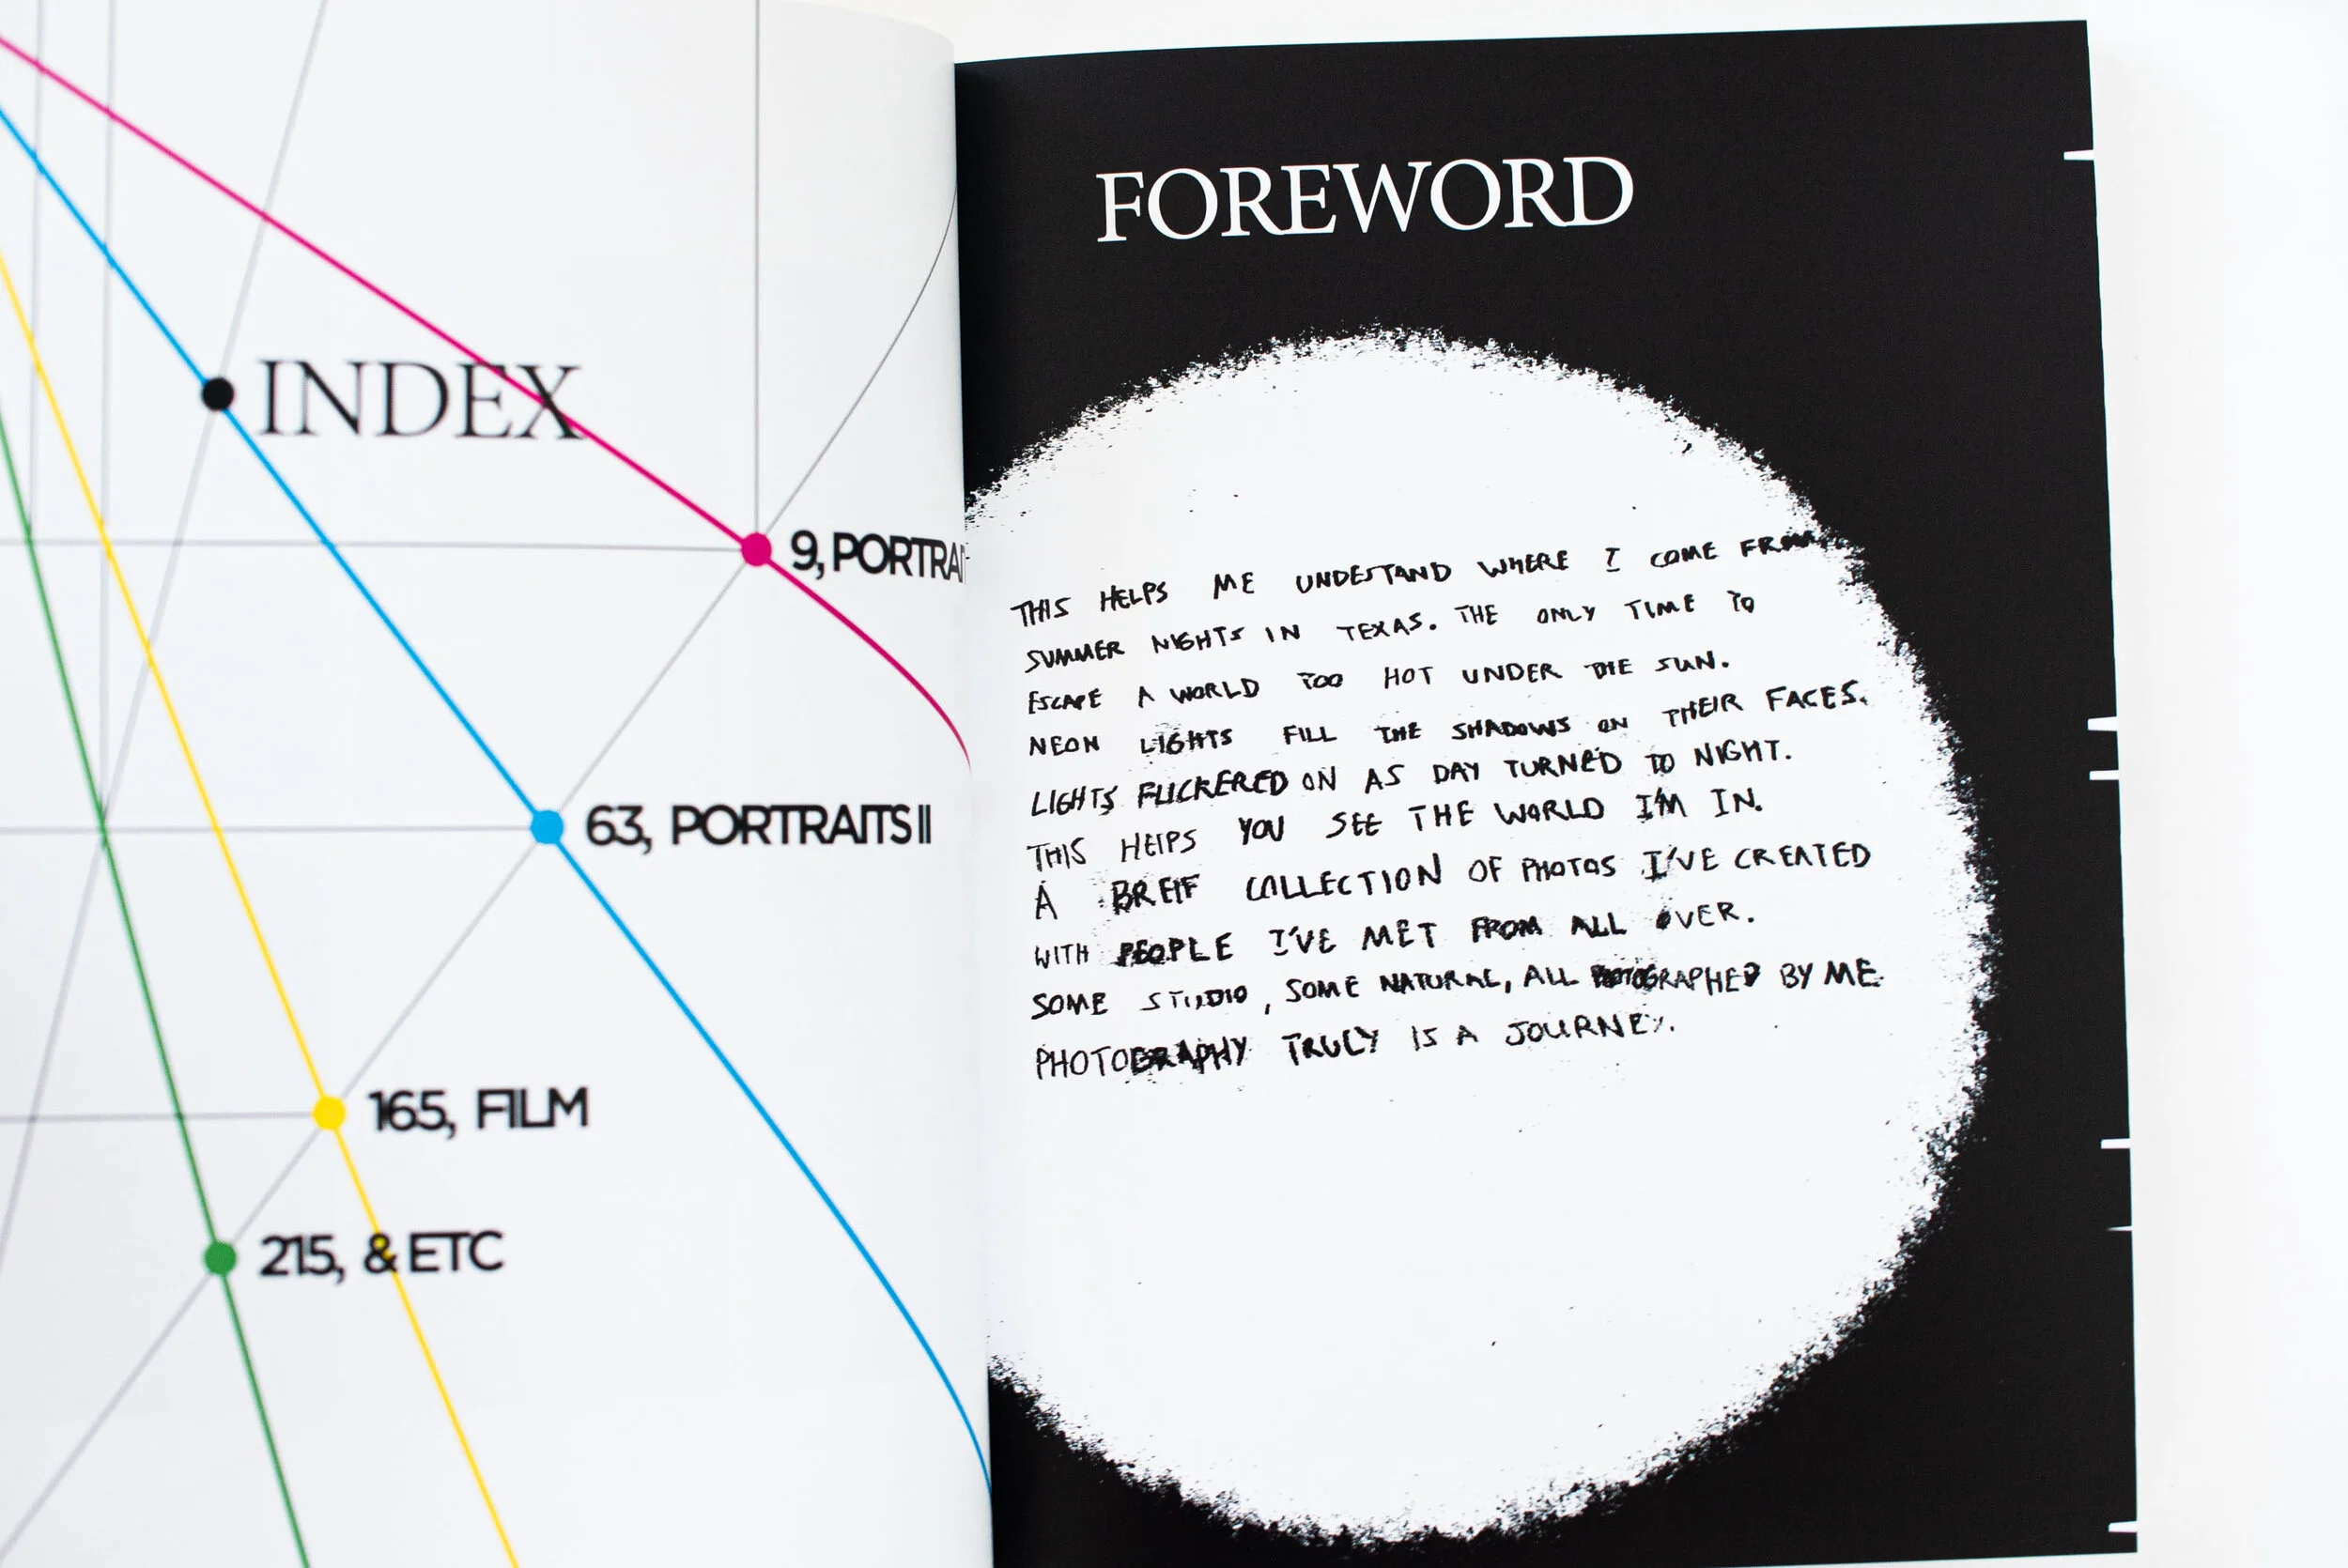 INDEX
9, PORTRAI
63, PORTRAITS II
165, FILM
215, & ETC
FOREWORD
THIS HELPS ME UNDESTAND WHERE I COME FROM
SUMMER NIGHTS IN TEXAS. THE ONLY TIME TO
ESCAPE A WORLD TOO HOT UNDER THE SUN.
NEON LIGHTS FILL THE SHADOWS ON THEIR FACES.
LIGHTS FLICKERED ON AS DAY TURNED TO NIGHT.
THIS HELPS YOU SEE THE WORLD I'M IN.
A BREIF COLLECTION OF PHOTOS I'VE CREATED
WITH PEOPLE I'VE MET FROM ALL OVER.
SOME STUDIO, SOME NATURAL, ALL PHOTOGRAPHED BY ME.
PHOTOGRAPHY TRULY IS A JOURNEY.